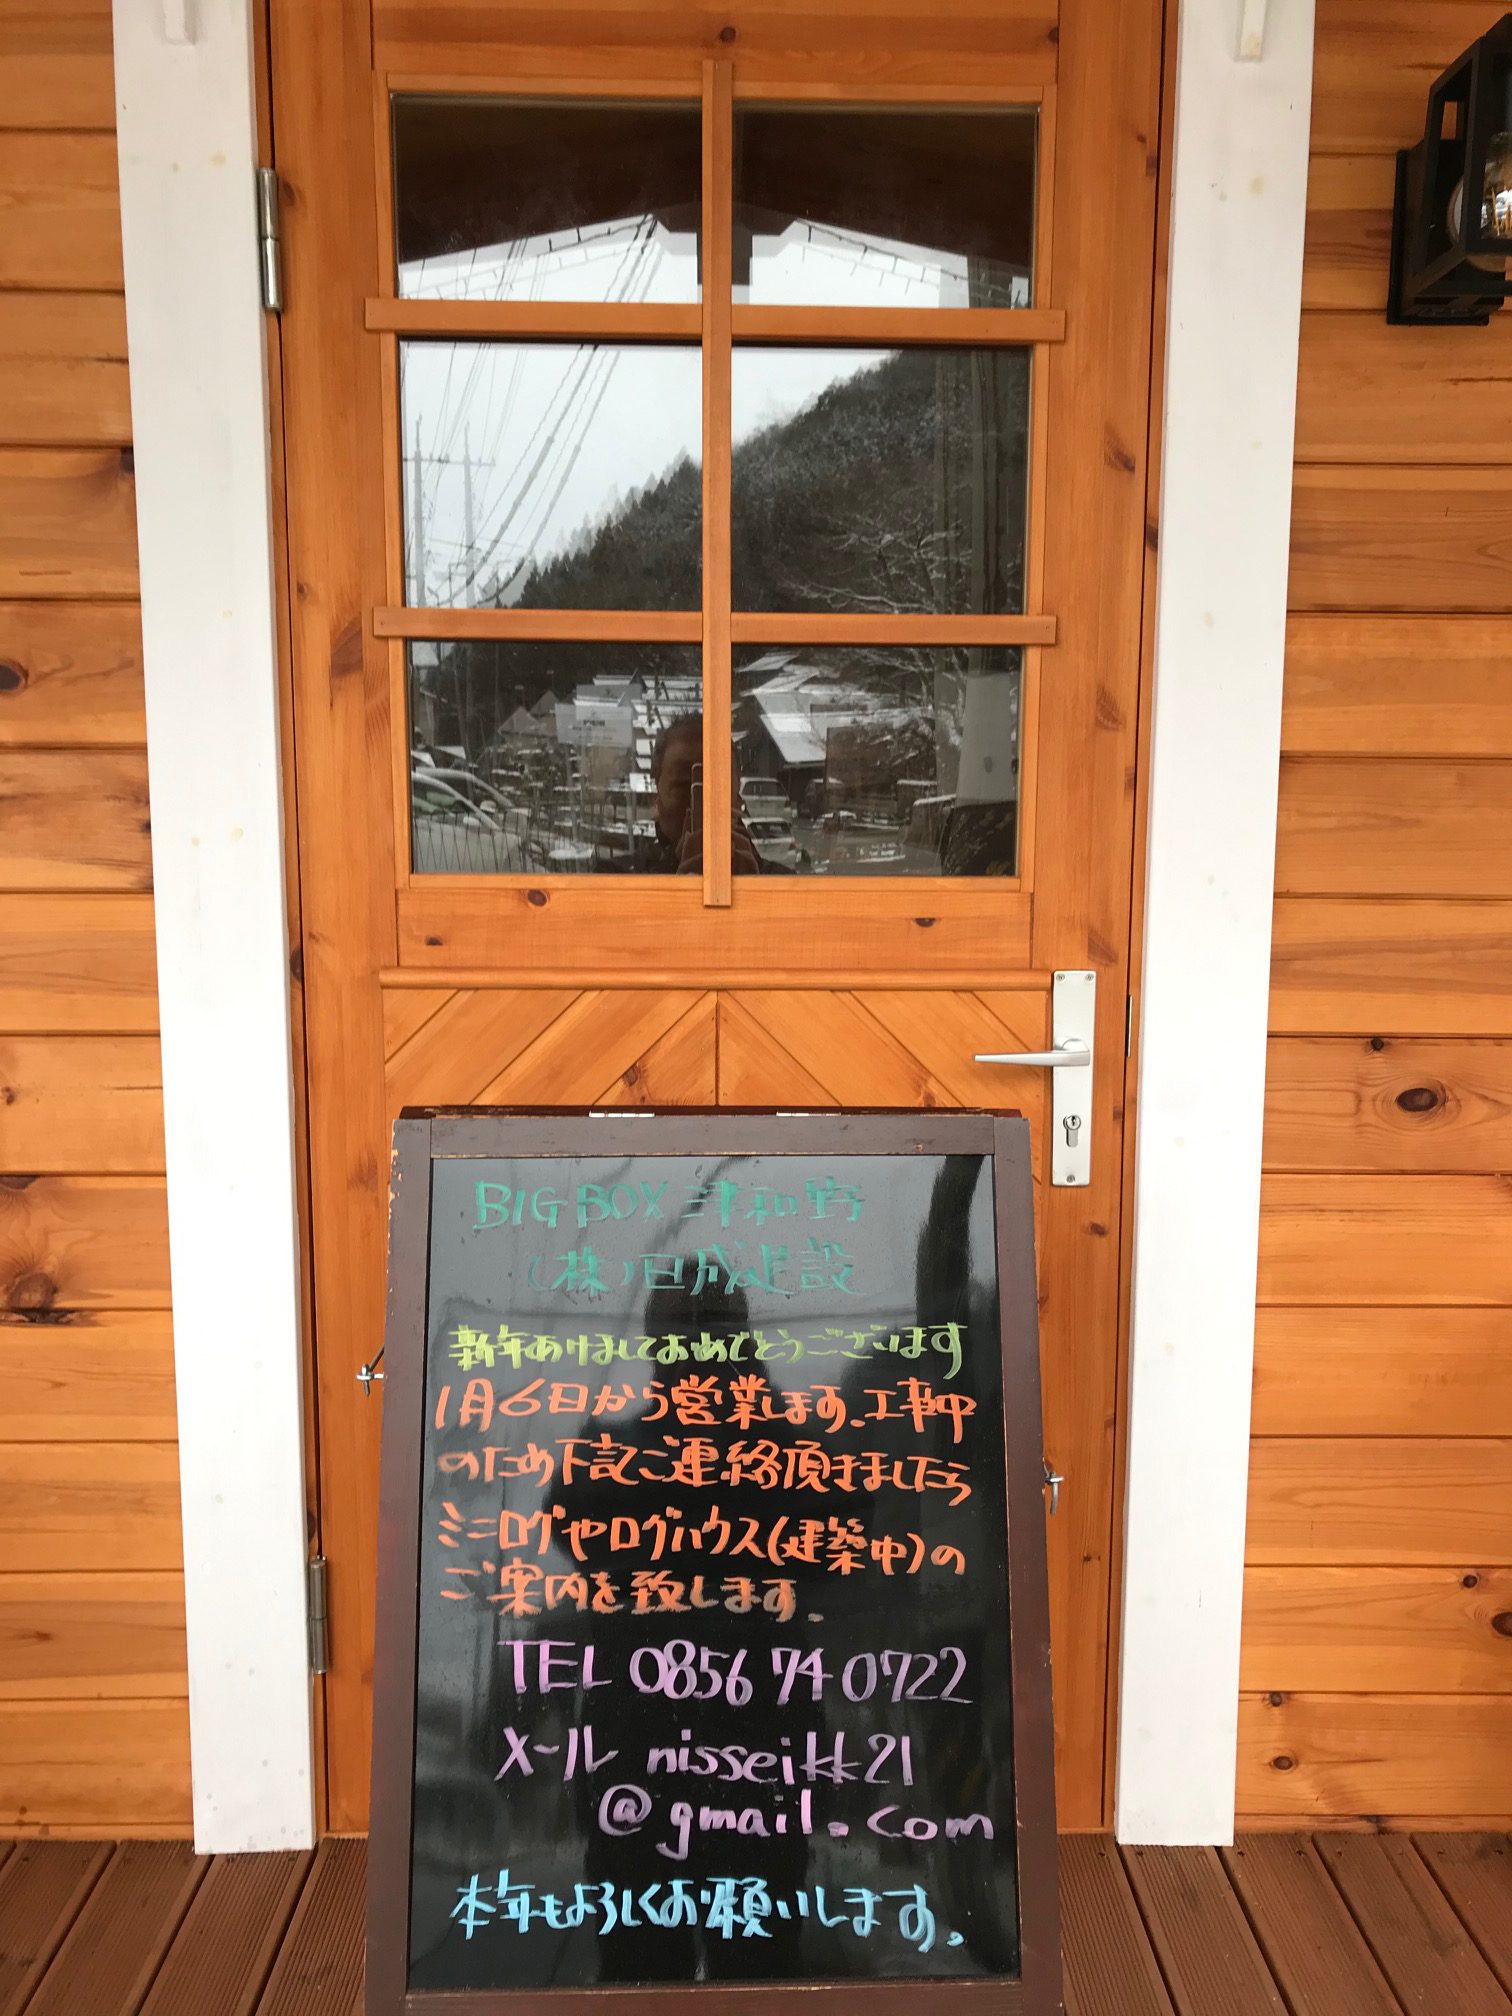 BIG BOX 津和野
(株)日成建設
新年あけましておめでとうございます
1月6日から営業します。工事中
のため下記ご連絡頂きましたら
ミニログやログハウス(建築中)の
ご案内を致します。
TEL 0856 74 0722
メール nisseikk21
@gmail.com
本年もよろしくお願いします。